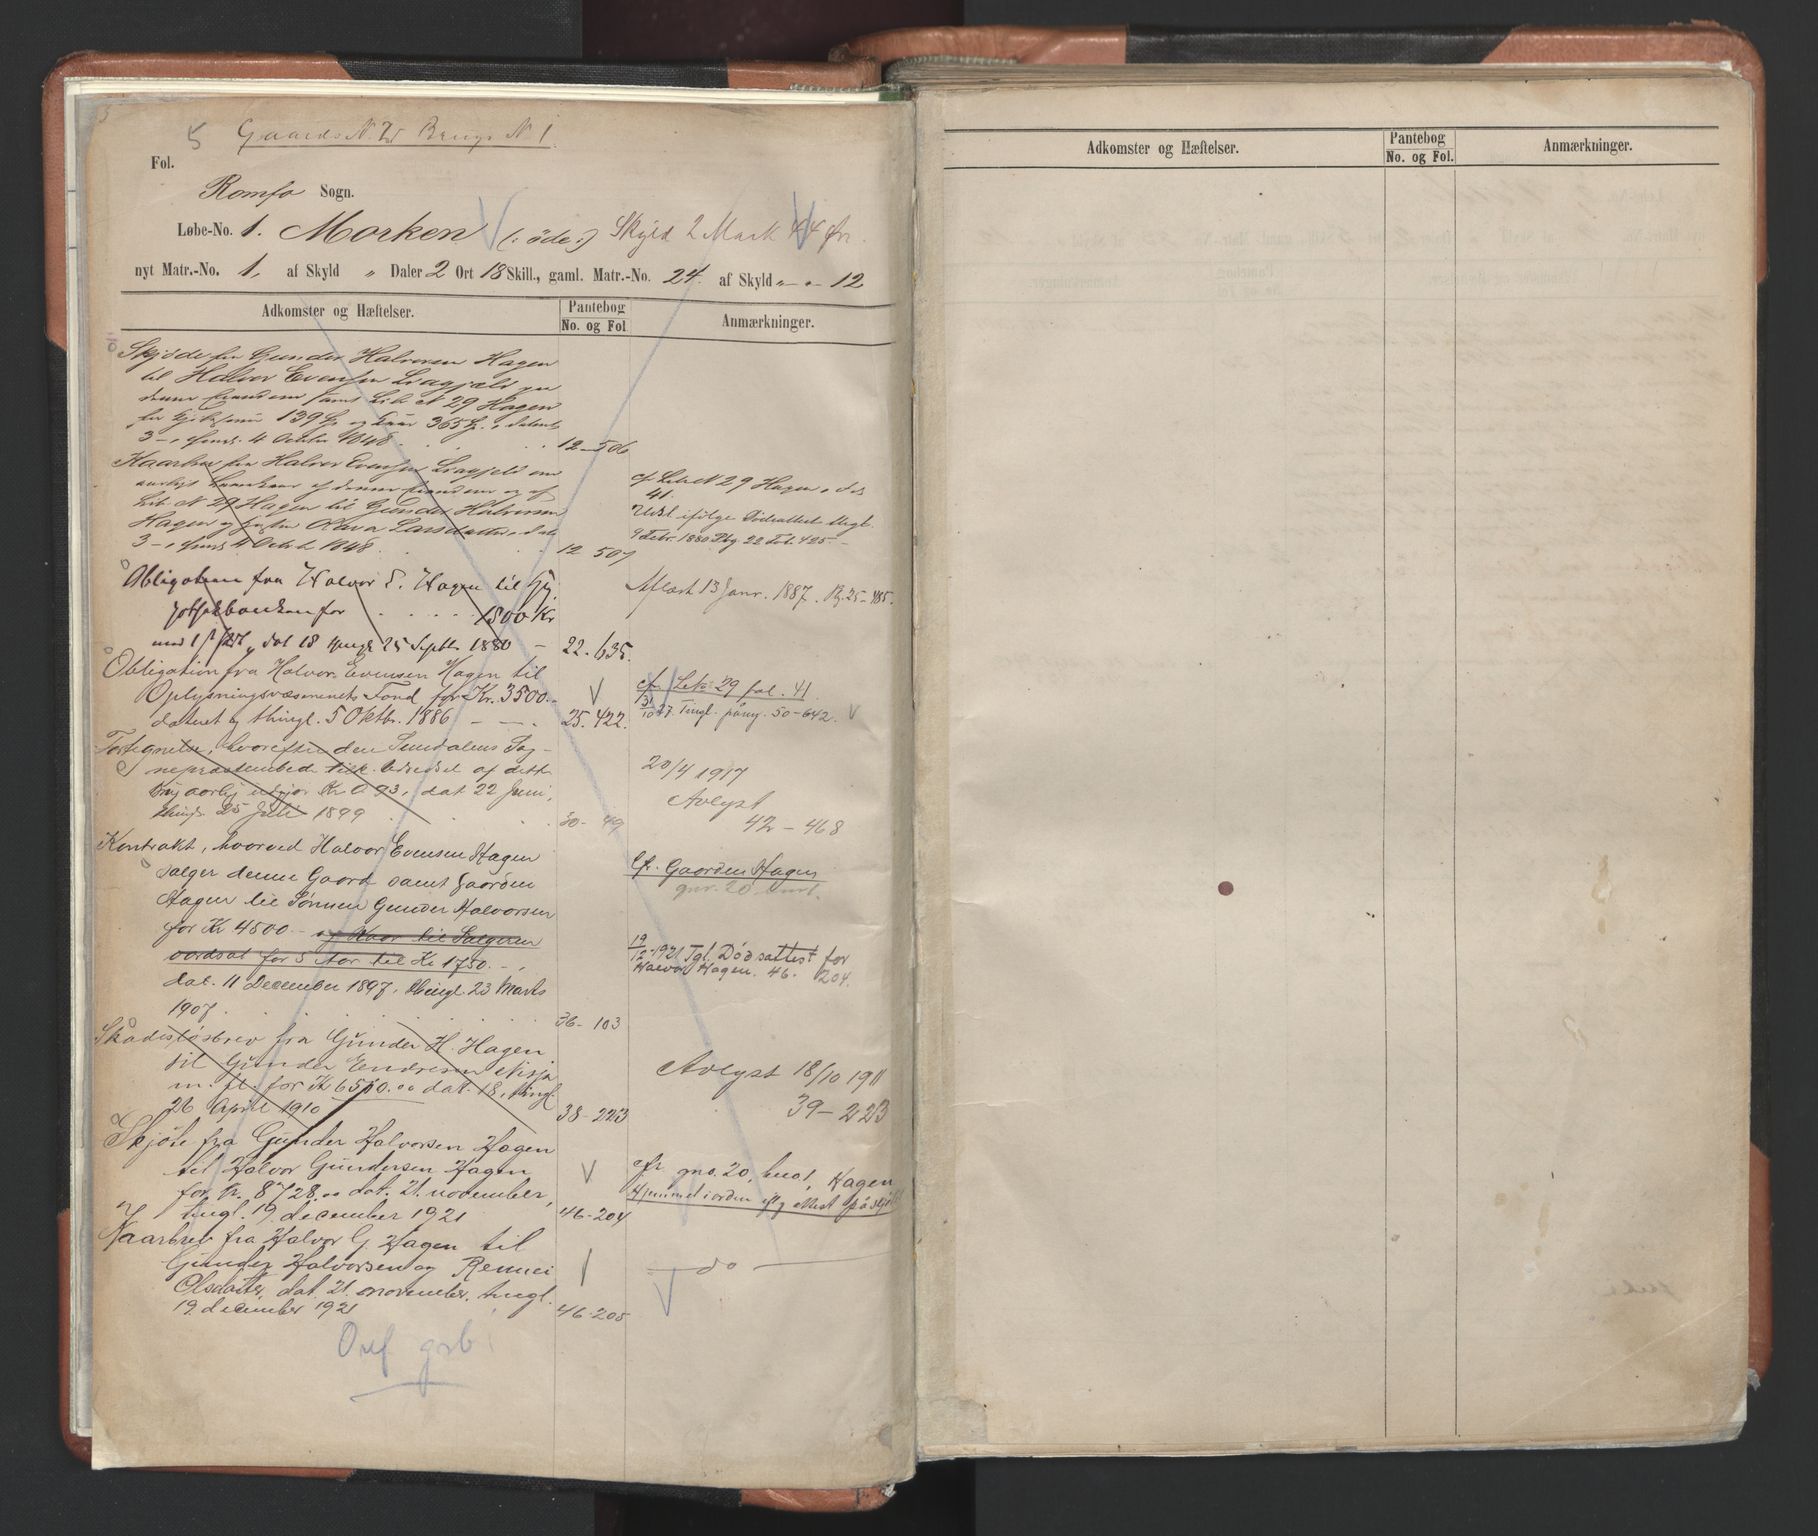 5 Gaards N. Brugs N. 1
Fol.
Romfo Sogn.
Løbe-No. 1. Morken (: öde :) Skyld 2 Mark 44 Øre.
nyt Matr.-No. 1, af Skyld " Daler 2 Ort 18 Skill., gaml. Matr.-No. 24. af Skyld " - " - 12
Adkomster og Hæftelser.
Pantebog
No. og Fol.
Anmærkninger.
Skjöde fra Gunder Halvorsen Hagen
til Halvor Evensen
denne Eiendom samt N 29 Hagen
for 139 og Kaar 365 datert
3 - 4 October 1848. 12-506
Kaarbrev fra Halvor Evensen om
aarligt af denne Eiendom og af
N 29 Hagen til Gunder Halvorsen
Hagen og Larsdatter, dat.
3 - 4 Octob 1848. 12 507
cf N 29 Hagen, fol.
41.
Udsl. ifölge Dödsattest thgl.
9 Febr. 1880 Pbg 22 Fol. 425.
Obligation fra Halvor E. Hagen til Hy-
pothekbanken for . . . 1800 Kr
med dat 18 thingl 25 Septbr 1880 - 22.635.
Aflæst 13 Janr. 1887. Pb. 25-485.
Obligation fra Halvor Evensen Hagen til
Oplysningsvæsenets Fond for Kr. 3500.-
dateret og thingl. 5 Oktbr. 1886 - - . 25.422.
cfr. 29 fol. 41.
Tingl. påny. 50-642. V
Fortegnelse, hvorefter den Sundalens Sog-
nepræstembede tilk. Vederlag af dette
Brug aarlig udgjør Kr 0.93, dat 22 Juni,
thingl. 25 Juli 1899 . 30-49
20/4 1917
Avlyst
42-468
Kontrakt, hvorved Halvor Evensen Hagen
sælger denne Gaard samt Gaarden
Hagen til Sønnen Gunder Halvorsen
for Kr 4500.- og Kaar til Sælgeren
værdsat for 5 Aar til Kr 1750.-,
dat. 11 December 1897, thingl. 23 Marts
1907 . . . . . 36-103
Cfr. Gaarden Hagen
gnr. 20 bnr 1.
19/12-1921 Tgl. Dødsattest for
Halvor Hagen. 46. 204.
Skadesløsbrev fra Gunder H. Hagen
til Gunder Endresen Nisja
m. fl. for Kr 6510.00 dat. 18, thingl.
26 April 1910 38-223
Avlyst 18/10 1911
39-223
Skjöte fra Gunder Halvorsen Hagen
til Halvor Gundersen Hagen
for Kr. 8728.00 dat. 21. november,
tingl. 19. december 1921 46-204
cfr. gno. 20, bno 1, Hagen
Hjemmel i orden eftg attest på skjöte
Kaarbrev fra Halvor G. Hagen til
Gunder Halvorsen og Rennei
Olsdatter, dat. 21. november, tingl.
19. december 1921 46-205
do
Ovf grb.
Adkomster og Hæftelser.
Pantebog
No. og Fol.
Anmærkninger.